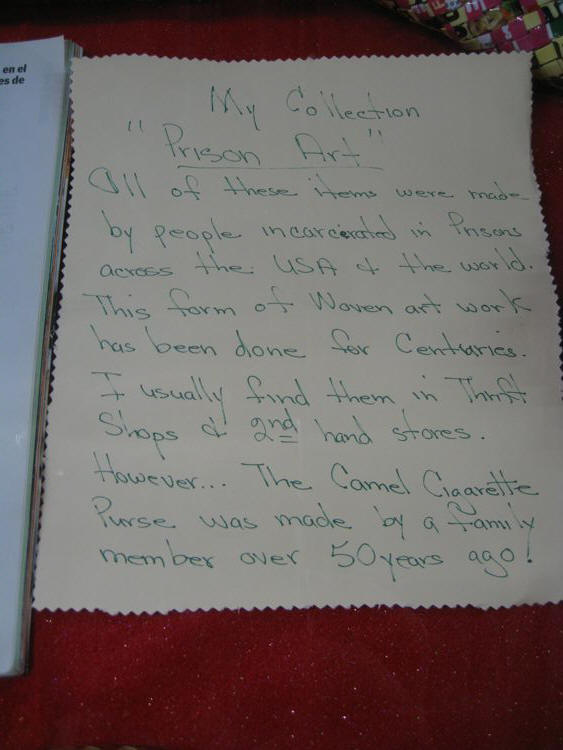 en el
es de
My Collection
"Prison Art"
All of these items were made
by people incarcerated in Prisons
across the USA & the world.
This form of Woven art work
has been done for Centuries.
I usually find them in Thrift
Shops & 2nd hand stores.
However... The Camel Cigarette
Purse was made by a family
member over 50 years ago!